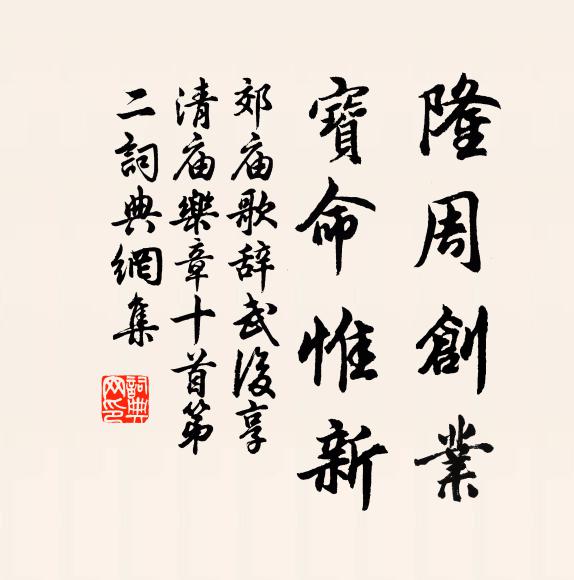 隆周創業
寶命惟新
郊庙歌辞武后享
清庙樂章十首第
二詞典網集
詞典網印